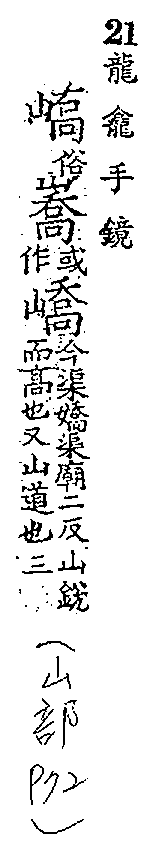 21 龍龕手鏡
嵪俗㠐或作嶠今渠嬌渠廟二反山銳而高也又山道也三
(山部 P72)